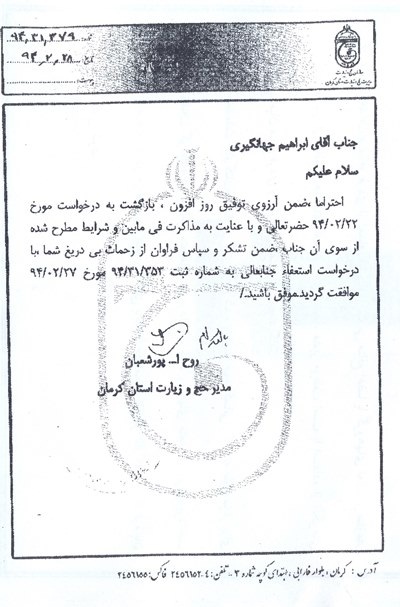 شماره: ۹۴,۳۱,۳۷۹
تاریخ: ۹۴,۲,۲۸
پیوست:
جناب آقای ابراهیم جهانگیری
سلام علیکم
احتراما ،ضمن آرزوی توفیق روز افزون ، بازگشت به درخواست مورخ
۹۴/۰۲/۲۲ حضرتعالی و با عنایت به مذاکرت فی مابین و شرایط مطرح شده
از سوی آن جناب ،ضمن تشکر و سپاس فراوان از زحمات بی دریغ شما ،با
درخواست استعفاء جنابعالی به شماره ثبت ۹۴/۳۱/۳۵۳ مورخ ۹۴/۰۲/۲۷
موافقت گردید.موفق باشید./
با احترام
روح ا... پورشعبان
مدیر حج و زیارت استان کرمان
آدرس : کرمان ، بلوار فارابی ، ابتدای کوچه شماره ۳ - تلفن: ۴-۲۴۵۶۱۵۲ فاکس: ۲۴۵۶۱۵۵